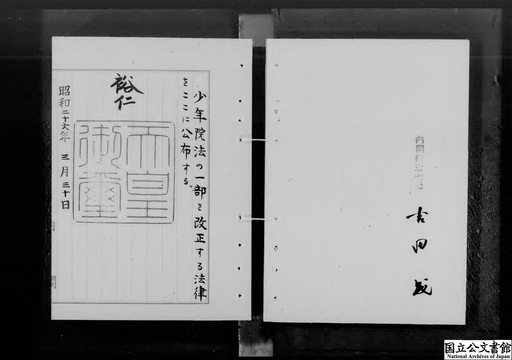 少年院法の一部を改正する法律
をここに公布する。
裕仁
天皇
御璽
昭和二十六年 三月三十日
内閣総理大臣
吉田茂
国立公文書館
National Archives of Japan